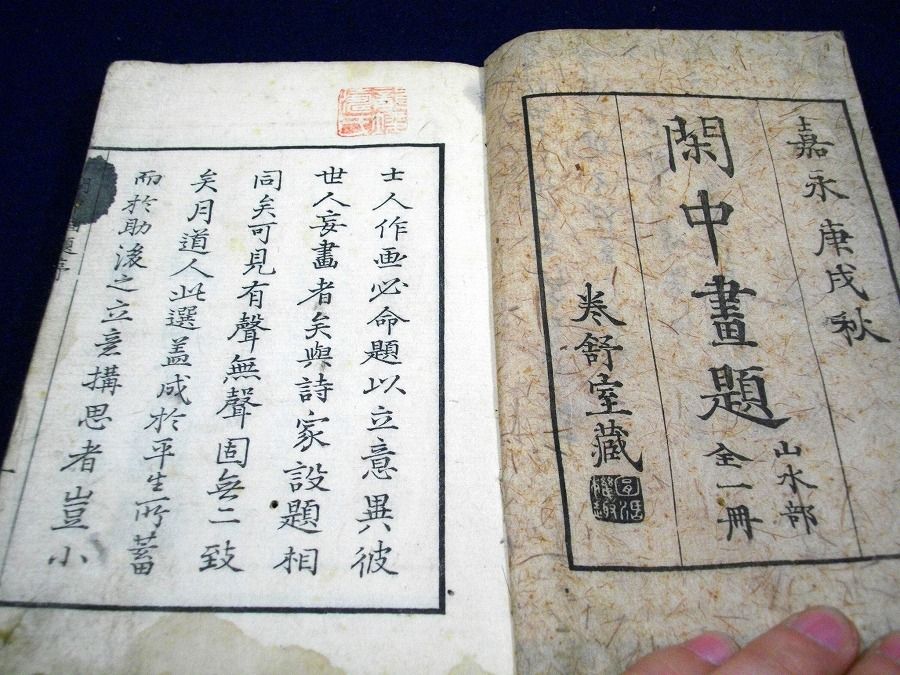 嘉永庚戌秋
閑中畫題
山水部
全一冊
卷舒室藏
士人作画必命題以立意異彼
世人妄畫者矣與詩家設題相
同矣可見有聲無聲固無二致
矣月道人此選盖成於平生所蓄
而於助後之立意搆思者豈小
題序